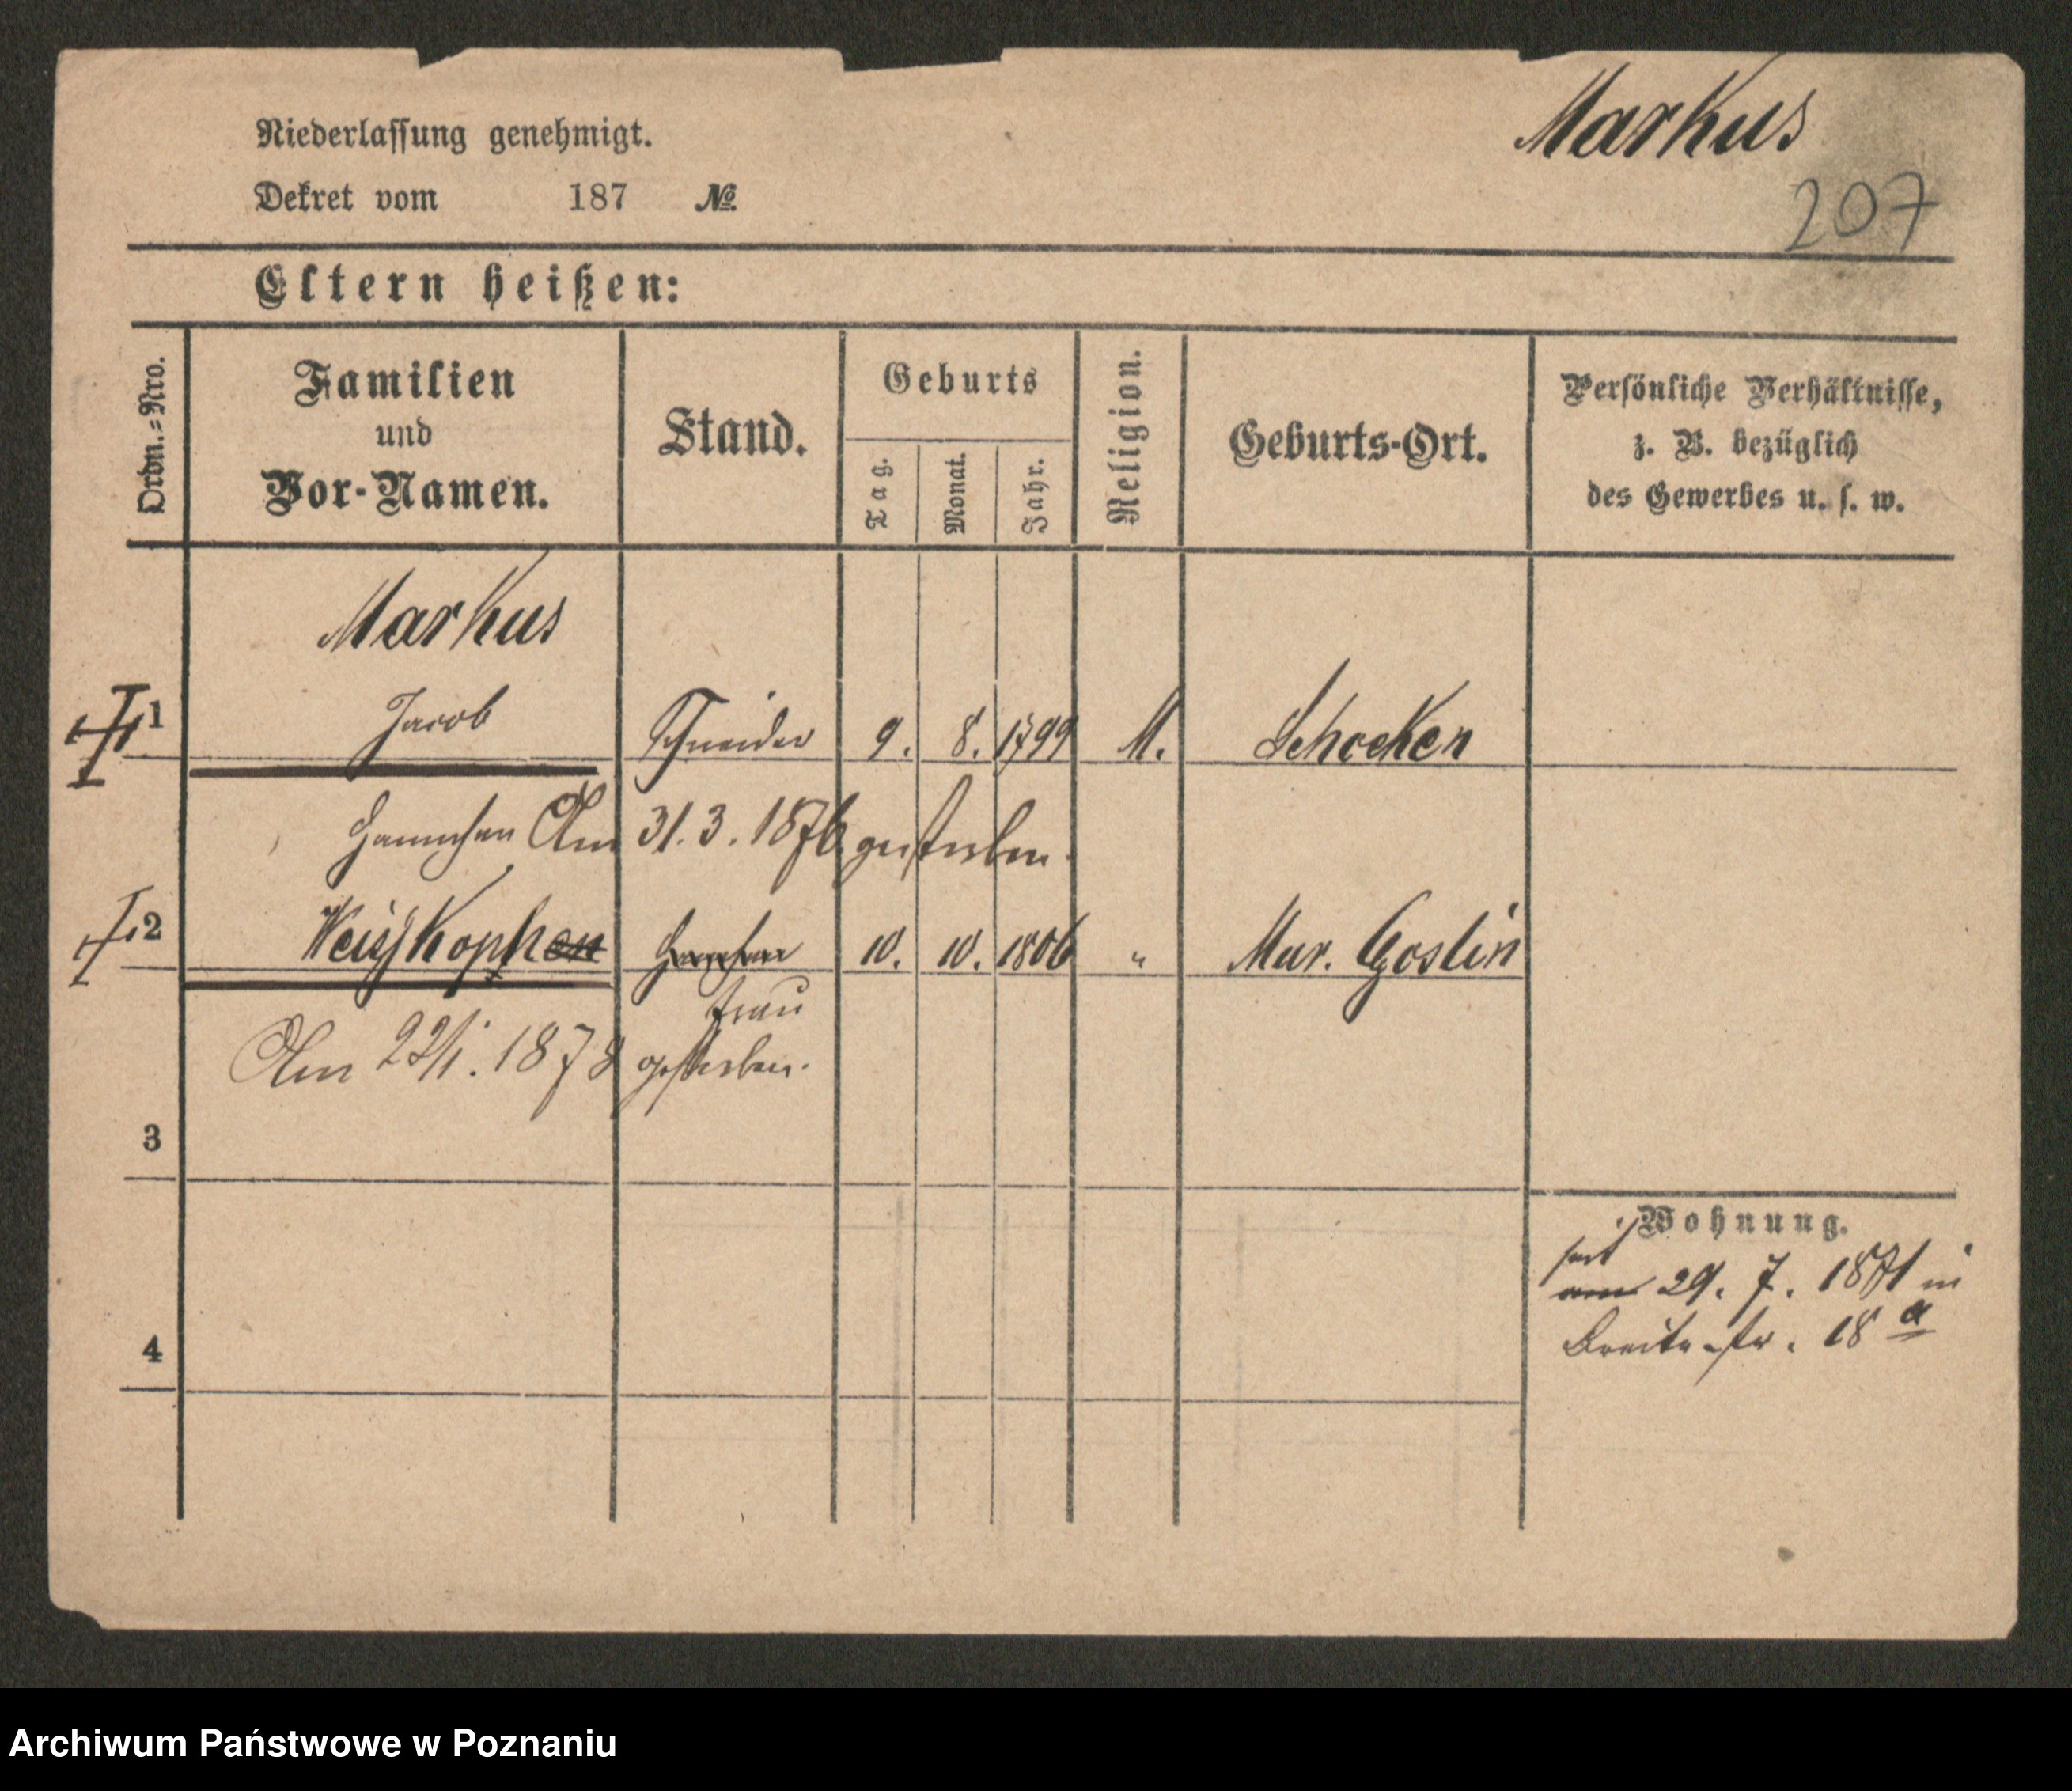 Markus
207
Niederlassung genehmigt.
Dekret vom 187 №
Eltern heißen:
Ordn.-Nro.
Familien
und
Vor-Namen.
Stand.
Geburts
Tag.
Monat.
Jahr.
Religion.
Geburts-Ort.
Persönliche Verhältnisse,
z. B. bezüglich
des Gewerbes u. s. w.
Markus
1 Jacob Schneider 9. 8. 1799 M. Schocken
Hannchen Am 31. 3. 1876 gestorben.
2 Weißkophen Hannchen 10. 10. 1806 " Mur. Goslin
frau
Am 22/1. 1878 gestorben.
3
Wohnung.
seit
am 29. 7. 1871 in
Breite-str. 18 a
4
Archiwum Państwowe w Poznaniu